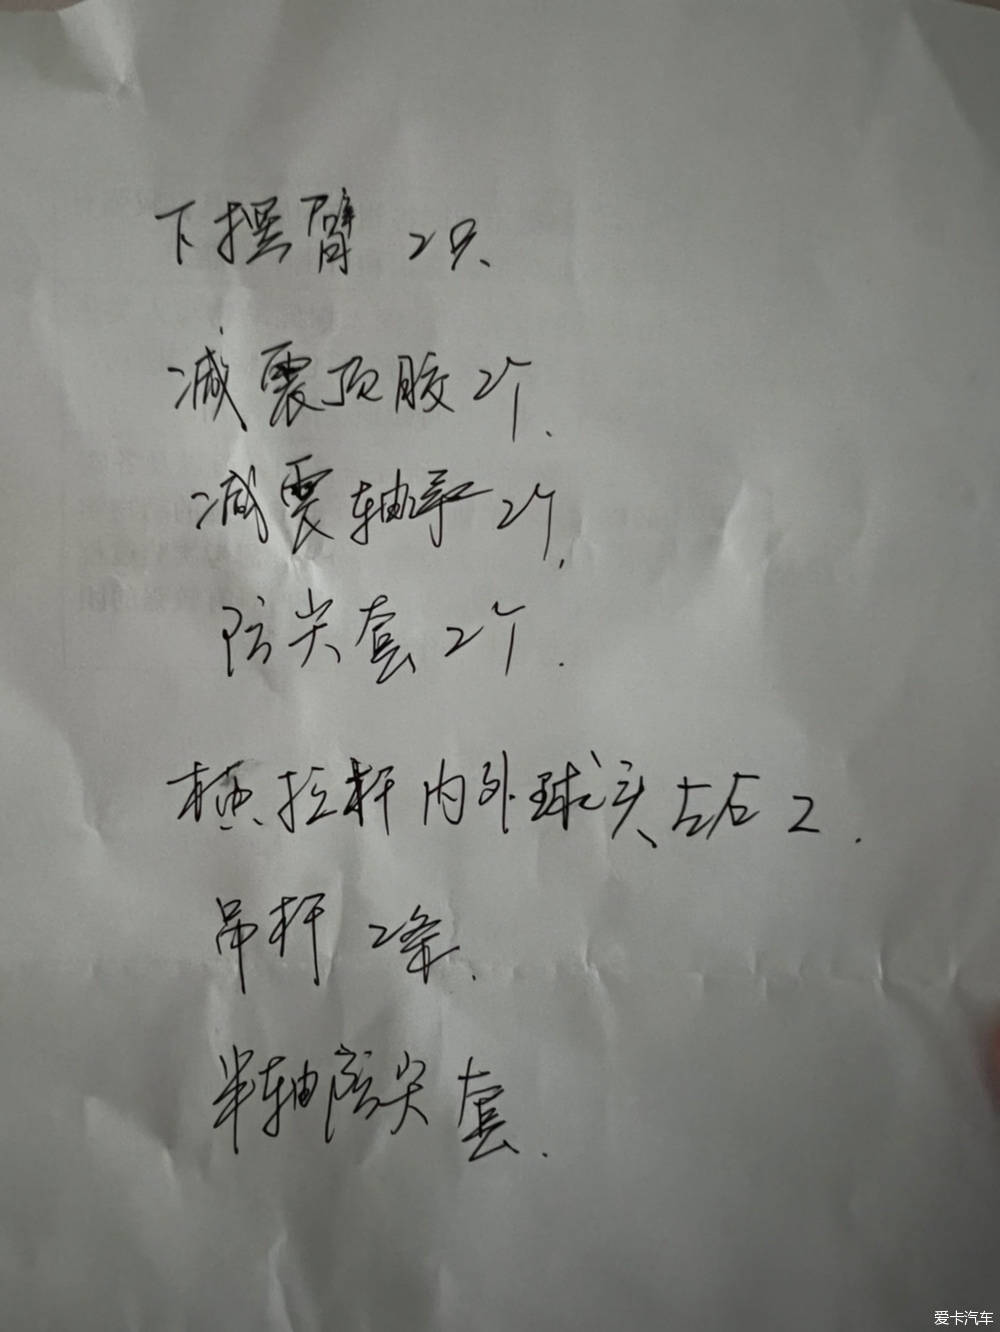 下摆臂 2只、
减震顶胶2个.
减震轴承2个.
防尘套2个.
横拉杆内外球头左右2.
吊杆 2条.
半轴防尘套.
爱卡汽车